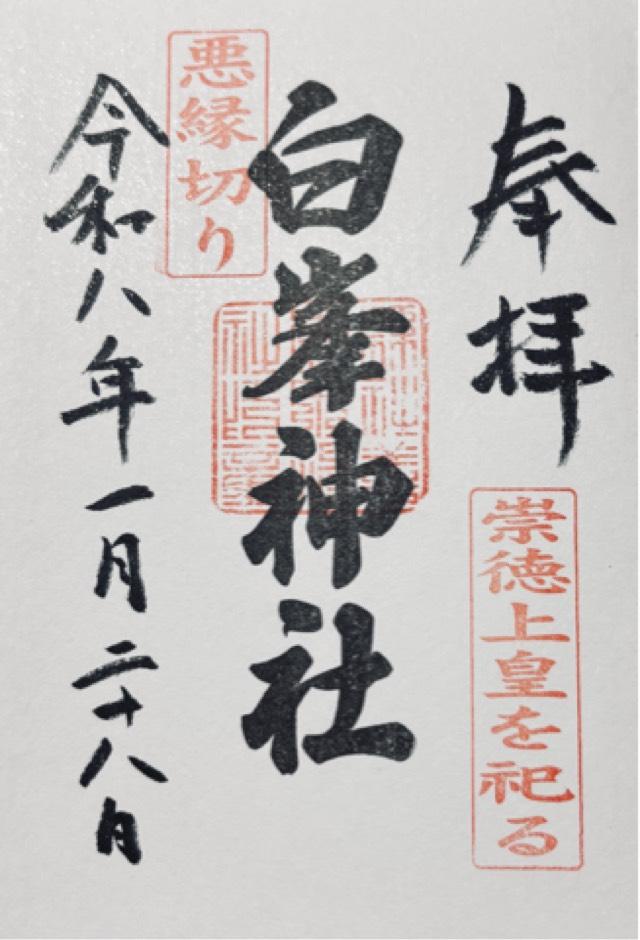 奉拝
崇徳上皇を祀る
白峯神社
悪縁切り
令和八年一月二十八日